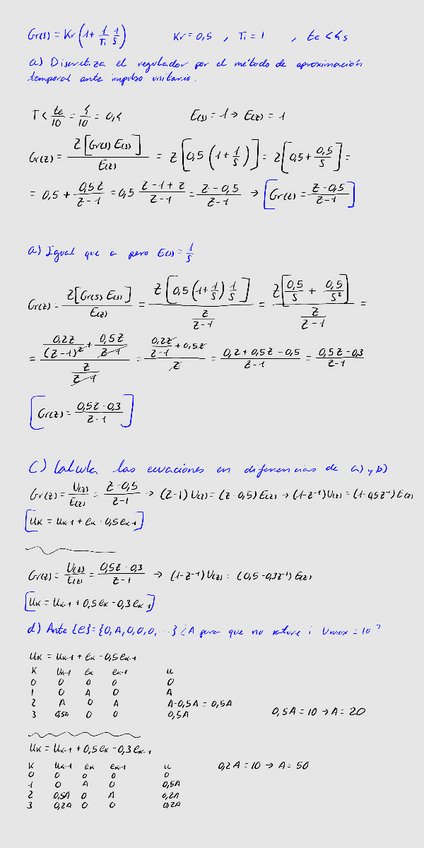 Gr(s) = Kr (1 + 1/Ti 1/s)    Kr = 0,5 , Ti = 1 , te < 4s
a) Discretiza el regulador por el método de aproximación
temporal ante impulso unitario.
T < te/10 = 4/10 = 0,4    E(s) = 1 → E(z) = 1
Gr(z) = Z[Gr(s) E(s)]/E(z) = Z[0,5 (1 + 1/s)] = Z[0,5 + 0,5/s] =
= 0,5 + 0,5z/z-1 = 0,5 z-1+z/z-1 = z-0,5/z-1 → [Gr(z) = z-0,5/z-1]
a) Igual que a pero E(s) = 1/s
Gr(z) = Z[Gr(s) E(s)]/E(z) = Z[0,5 (1 + 1/s) 1/s] / z/z-1 = Z[0,5/s + 0,5/s²] / z/z-1 =
= 0,2z/(z-1)² + 0,5z/z-1 / z/z-1 = 0,2z/z-1 + 0,5z / z = 0,2+0,5z-0,5/z-1 = 0,5z-0,3/z-1
[Gr(z) = 0,5z-0,3/z-1]
C) Calcula las ecuaciones en diferencias de a) y b)
Gr(z) = U(z)/E(z) = z-0,5/z-1 → (z-1) U(z) = (z-0,5) E(z) → (1-z⁻¹) U(z) = (1-0,5z⁻¹) E(z)
[uk = uk-1 + ek - 0,5ek-1]
Gr(z) = U(z)/E(z) = 0,5z-0,3/z-1 → (1-z⁻¹) U(z) = (0,5-0,3z⁻¹) E(z)
[uk = uk-1 + 0,5ek - 0,3ek-1]
d) Ante {e} = {0, A, 0, 0, 0, ...} ¿A para que no sature i Umax = 10?
uk = uk-1 + ek - 0,5ek-1
K uk-1 ek ek-1 u
0 0 0 0 0
1 0 A 0 A
2 A 0 A A-0,5A = 0,5A
3 0,5A 0 0 0,5A    0,5A = 10 → A = 20
uk = uk-1 + 0,5ek - 0,3ek-1
K uk-1 ek ek-1 u    0,2A = 10 → A = 50
0 0 0 0 0
1 0 A 0 0,5A
2 0,5A 0 A 0,2A
3 0,2A 0 0 0,2A